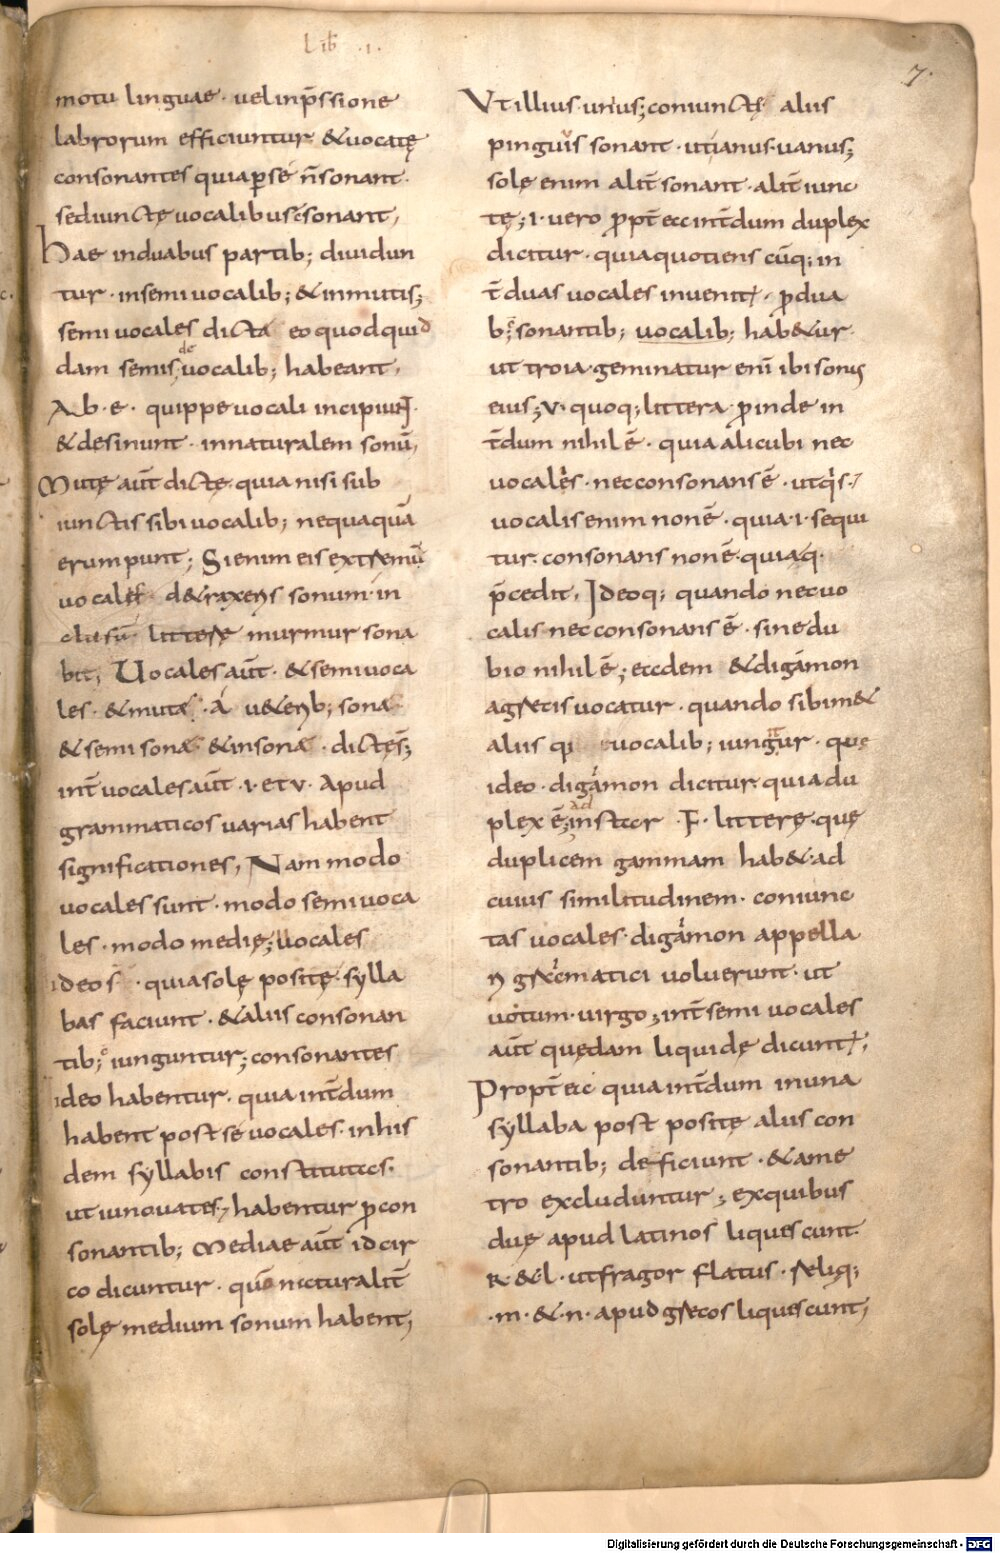 Lib̅ ·1·
7·
motu linguae· uel inp̅ssione
labrorum efficiuntur &uocatę
consonantes quia p̲se n̅ sonant·
sed iunctę uocalibus c̅sonant,
Hae in duabus partib; diuidun
tur · in semiuocalib; & in mutis;
semi uocales dicta eo quod quid
dam semis de uocalib; habeant,
Ab·e· quippe uocali incipiunt·
& desinunt · in naturalem sonu̅,
Mutę aut̅ dictę· quia nisi sub
iunctis sibi uocalib; nequaqua̅
erumpunt; Si enim eis extremu̅
uocalis detraxeris sonum· in
clusu̅ litterę murmur sona
bit; Uocales aut̅ · & semiuoca
les · & mutas · A ueterib; sonas
& semisonas & insonas · dictęs;
int̅ uocales aut̅ ·i· et v· Apud
grammaticos uarias habent
significationes, Nam modo
uocales sunt · modo semiuoca
les · modo medię; Uocales
ideo s · quia solę positę· sylla
bas faciunt · & aliis consonan
tib; iunguntur; consonantes
ideo habentur · quia int̅dum
habent post se uocales· in his
dem syllabis constitutas·
ut iuno uates; habentur p̲ con
sonantib; Mediae aut̅ idcir
co dicuntur · quod naturalit̅
solę medium sonum habent;
Ut illius· unius; coniunctę aliis
pinguius sonant · ut ianus· uanus;
solę enim alit̅ sonant · alit̅ iunc
tę; ·i· uero p̲pt̅ ea int̅dum duplex
dicitur · quia quotiens cu̅q; in
t̅ duas uocales inuenit̅, p̲ dua
b; sonantib; uocalib; hab&ur·
ut troia· geminatur eni̅ ibi sonus
eius; v· quoq; littera· p̲inde in
t̅dum nihil e̅ · quia alicubi nec
uocalis · nec consonans e̅ · ut quis·
uocalis enim non e̅ · quia ·i· sequi
tur· consonans non e̅· quia q·
p̅cedit, Ideoq; quando nec uo
calis nec consonans e̅ · sine du
bio nihil e̅; eadem & digammon
a grecis uocatur · quando sibim&
aliis q uocalib; iungitur · quę
ideo · digammon dicitur· quia du
plex e̅; ad instar · F· litterę· quę
duplicem gammam hab&· ad
cuius similitudinem · coniunc
tas uocales· digammon appella
ri grammatici uoluerunt· ut
uotum· uirgo; int̅ semi uocales
aut̅ quędam liquidę dicunt̅;
Propt̅ ea quia int̅dum in una
syllaba post positę aliis con
sonantib; deficiunt · & a me
tro excluduntur; ex quibus
duę apud latinos liquescunt·
R· &·l· ut fragor flatus · reliq;
·m· &·n· apud grecos liquescunt,
Digitalisierung gefördert durch die Deutsche Forschungsgemeinschaft - DFG